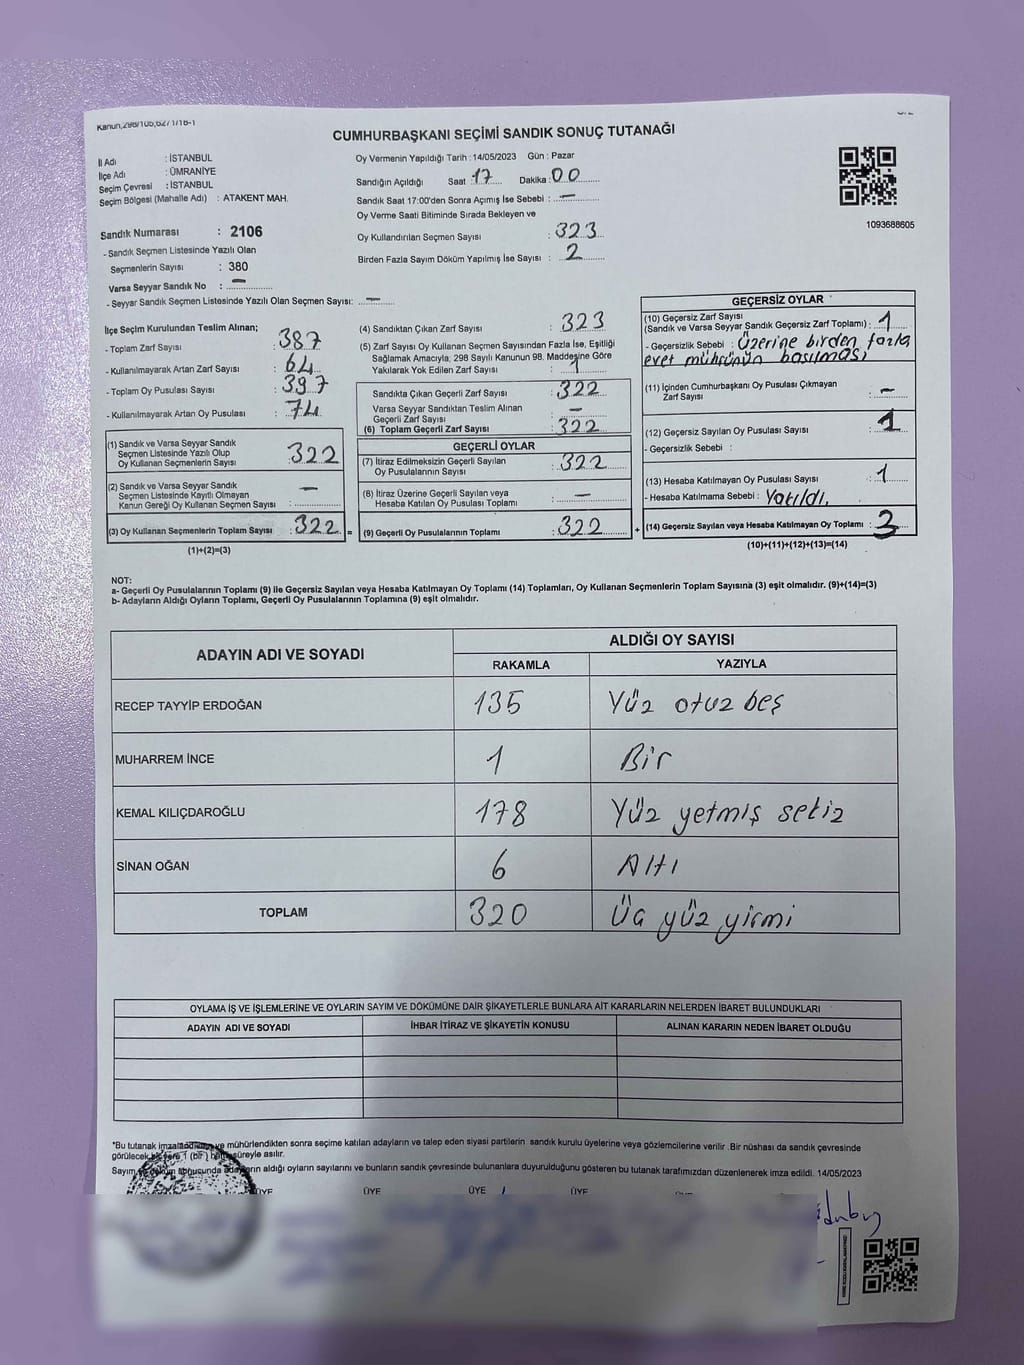 CUMHURBAŞKANI SEÇİMİ SANDIK SONUÇ TUTANAĞI
İl Adı : İSTANBUL
İlçe Adı : ÜMRANİYE
Seçim Çevresi : İSTANBUL
Seçim Bölgesi (Mahalle Adı) : ATAKENT MAH.
Sandık Numarası : 2106
- Sandık Seçmen Listesinde Yazılı Olan
Seçmenlerin Sayısı : 380
Varsa Seyyar Sandık No : —
- Seyyar Sandık Seçmen Listesinde Yazılı Olan Seçmen Sayısı: —
Oy Vermenin Yapıldığı Tarih : 14/05/2023 Gün : Pazar
Sandığın Açıldığı Saat 17 Dakika 00
Sandık Saat 17:00'den Sonra Açımış İse Sebebi : —
Oy Verme Saati Bitiminde Sırada Bekleyen ve
Oy Kullandırılan Seçmen Sayısı : 323
Birden Fazla Sayım Döküm Yapılmış İse Sayısı : 2
1093688605
İlçe Seçim Kurulundan Teslim Alınan;
- Toplam Zarf Sayısı : 387
- Kullanılmayarak Artan Zarf Sayısı : 64
- Toplam Oy Pusulası Sayısı : 397
- Kullanılmayarak Artan Oy Pusulası : 74
(1) Sandık ve Varsa Seyyar Sandık
Seçmen Listesinde Yazılı Olup
Oy Kullanan Seçmenlerin Sayısı : 322
(2) Sandık ve Varsa Seyyar Sandık
Seçmen Listesinde Kayıtlı Olmayan
Kanun Gereği Oy Kullanan Seçmen Sayısı : —
(3) Oy Kullanan Seçmenlerin Toplam Sayısı : 322 =
(1)+(2)=(3)
(4) Sandıktan Çıkan Zarf Sayısı : 323
(5) Zarf Sayısı Oy Kullanan Seçmen Sayısından Fazla İse, Eşitliği
Sağlamak Amacıyla; 298 Sayılı Kanunun 98. Maddesine Göre
Yakılarak Yok Edilen Zarf Sayısı : 1
Sandıkta Çıkan Geçerli Zarf Sayısı : 322
Varsa Seyyar Sandıktan Teslim Alınan
Geçerli Zarf Sayısı : —
(6) Toplam Geçerli Zarf Sayısı : 322
GEÇERLİ OYLAR
(7) İtiraz Edilmeksizin Geçerli Sayılan
Oy Pusulalarının Sayısı : 322
(8) İtiraz Üzerine Geçerli Sayılan veya
Hesaba Katılan Oy Pusulası Toplamı : —
(9) Geçerli Oy Pusulalarının Toplamı : 322 +
GEÇERSİZ OYLAR
(10) Geçersiz Zarf Sayısı
(Sandık ve Varsa Seyyar Sandık Geçersiz Zarf Toplamı) : 1
- Geçersizlik Sebebi : Üzerine birden fazla
evet mührünün basılması
(11) İçinden Cumhurbaşkanı Oy Pusulası Çıkmayan
Zarf Sayısı : —
(12) Geçersiz Sayılan Oy Pusulası Sayısı : 1
- Geçersizlik Sebebi :
(13) Hesaba Katılmayan Oy Pusulası Sayısı : 1
- Hesaba Katılmama Sebebi : Yakıldı.
(14) Geçersiz Sayılan veya Hesaba Katılmayan Oy Toplamı : 3
(10)+(11)+(12)+(13)=(14)
NOT:
a- Geçerli Oy Pusulalarının Toplamı (9) ile Geçersiz Sayılan veya Hesaba Katılmayan Oy Toplamı (14) Toplamları, Oy Kullanan Seçmenlerin Toplam Sayısına (3) eşit olmalıdır. (9)+(14)=(3)
b- Adayların Aldığı Oyların Toplamı, Geçerli Oy Pusulalarının Toplamına (9) eşit olmalıdır.
ADAYIN ADI VE SOYADI ALDIĞI OY SAYISI
RAKAMLA YAZIYLA
RECEP TAYYİP ERDOĞAN 135 Yüz otuz beş
MUHARREM İNCE 1 Bir
KEMAL KILIÇDAROĞLU 178 Yüz yetmiş sekiz
SİNAN OĞAN 6 Altı
TOPLAM 320 Üç yüz yirmi
OYLAMA İŞ VE İŞLEMLERİNE VE OYLARIN SAYIM VE DÖKÜMÜNE DAİR ŞİKAYETLERLE BUNLARA AİT KARARLARIN NELERDEN İBARET BULUNDUKLARI
ADAYIN ADI VE SOYADI İHBAR İTİRAZ VE ŞİKAYETİN KONUSU ALINAN KARARIN NEDEN İBARET OLDUĞU
*Bu tutanak mühürlendikten sonra seçime katılan adayların ve talep eden siyasi partilerin sandık kurulu üyelerine veya gözlemcilerine verilir .Bir nüshası da sandık çevresinde
görülecek 1 (bir) süreyle asılır.
Sayım aldığı oyların sayılarını ve bunların sandık çevresinde bulunanlara duyurulduğunu gösteren bu tutanak tarafımızdan düzenlenerek imza edildi. 14/05/2023
ÜYE ÜYE ÜYE ÜYE